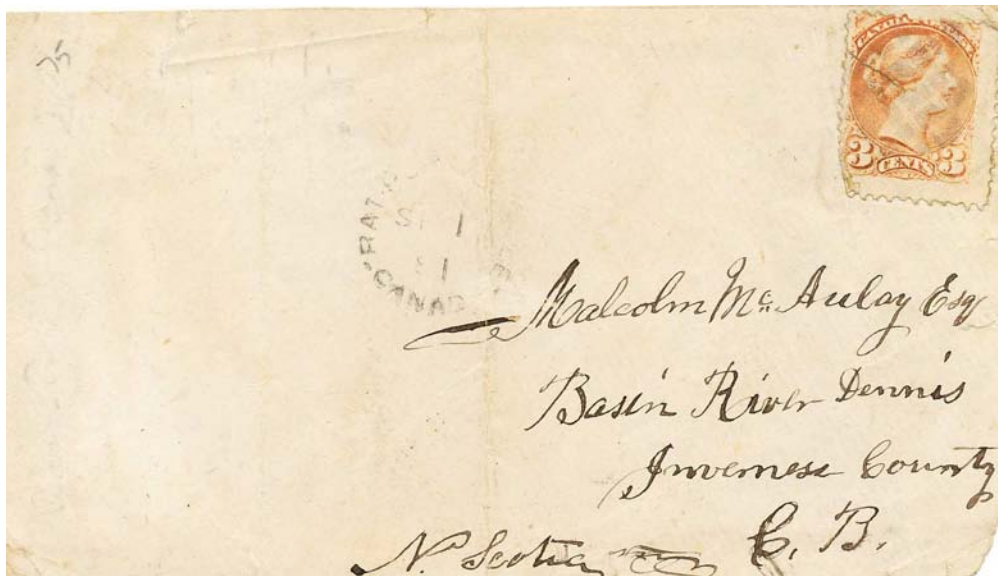 75
CANADA POSTAGE
3 CENTS 3
RAT P
1
1
CANAD
Malcolm Mc. Aulay Esq
Basin River Dennis
Inverness County
C. B.
N. Scotia